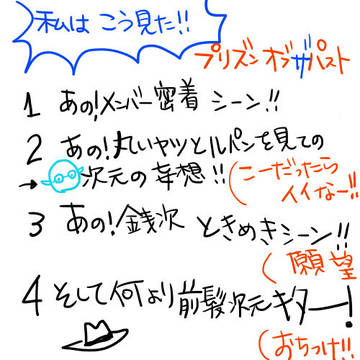 私は こう見た!!
プリズン オブ ザ パスト
1 あの!メンバー密着 シーン!!
2 あの!丸いヤツとルパンを見ての
→次元の妄想!!(こーだったらイイなー!!
3 あの!銭次 ときめきシーン!!
(願望
4 そして何より前髪次元キター!
(おちつけ!!